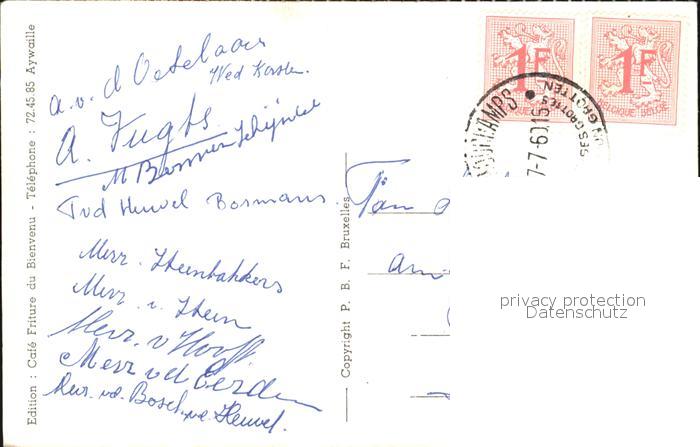 Edition : Café Friture du Bienvenu - Téléphone : 72.45.85 Aywaille
a. v. d Oetelaar
Wed Kersten.
A. Vugts
M Bermer Schijndel
Tvd Heuvel Bosmans
Merr. Steenbakkers
Merr. v. Stein
Merr. v Hooff
Merr vd Eerden
Mevr. vd. Bosch. vd. Heuvel.
Copyright P. B. F. Bruxelles
1F
BELGIQUE BELGIË
1F
BELGIQUE BELGIË
7-7-60
SES GROTTES
GROTTEN
privacy protection
Datenschutz